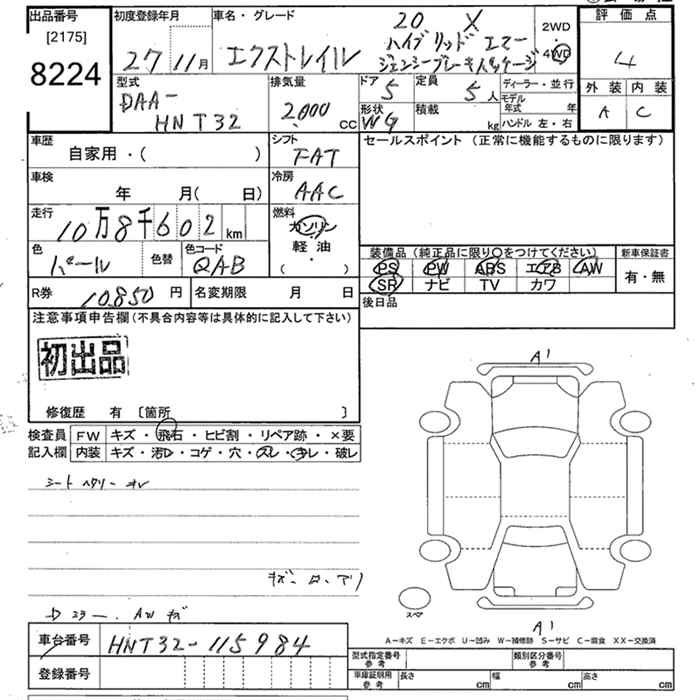 出品番号
[2175]
8224
初度登録年月
27年11月
車名・グレード
エクストレイル
20 X
ハイブリッド エマー
ジェンシーブレーキパッケージ
2WD
・
4WD
評価点
4
外装 内装
A C
型式
DAA-
HNT32
排気量
2,000 CC
ドア 5
定員 5人
ディーラー・並行
モデル年式 年
形状 WG
積載 kg
ハンドル 左・右
車歴
自家用・( )
シフト
FAT
セールスポイント(正常に機能するものに限ります)
車検
年 月( 日)
冷房
AAC
走行
10万8千602km
燃料
ガソリン
軽油
・
( )
色
パール
色替
色コード
QAB
装備品(純正品に限り○をつけてください)
新車保証書
PS PW ABS エアB AW
有・無
SR ナビ TV カワ
R券 10,850円
名変期限 月 日
後日品
注意事項申告欄(不具合内容等は具体的に記入して下さい)
初出品
修復歴 有 〔箇所 〕
検査員
記入欄
FW キズ・飛石・ヒビ割・リペア跡・×要
内装 キズ・汚レ・コゲ・穴・スレ・キレ・破レ
シートヘタリー
D ミラー . AW キズ
A1
スペア
A1
A−キズ E−エクボ U−凹み W−補修跡 S−サビ C−腐食 XX−交換済
車台番号 HNT32-115984
登録番号
型式指定番号
参考
類別区分番号
参考
車庫証明用
参考
長さ cm
幅 cm
高さ cm